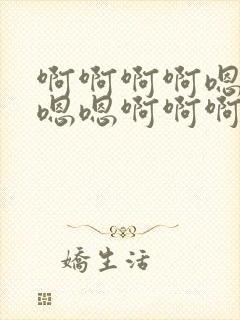 啊啊啊啊嗯
嗯嗯啊啊啊
嬌生活